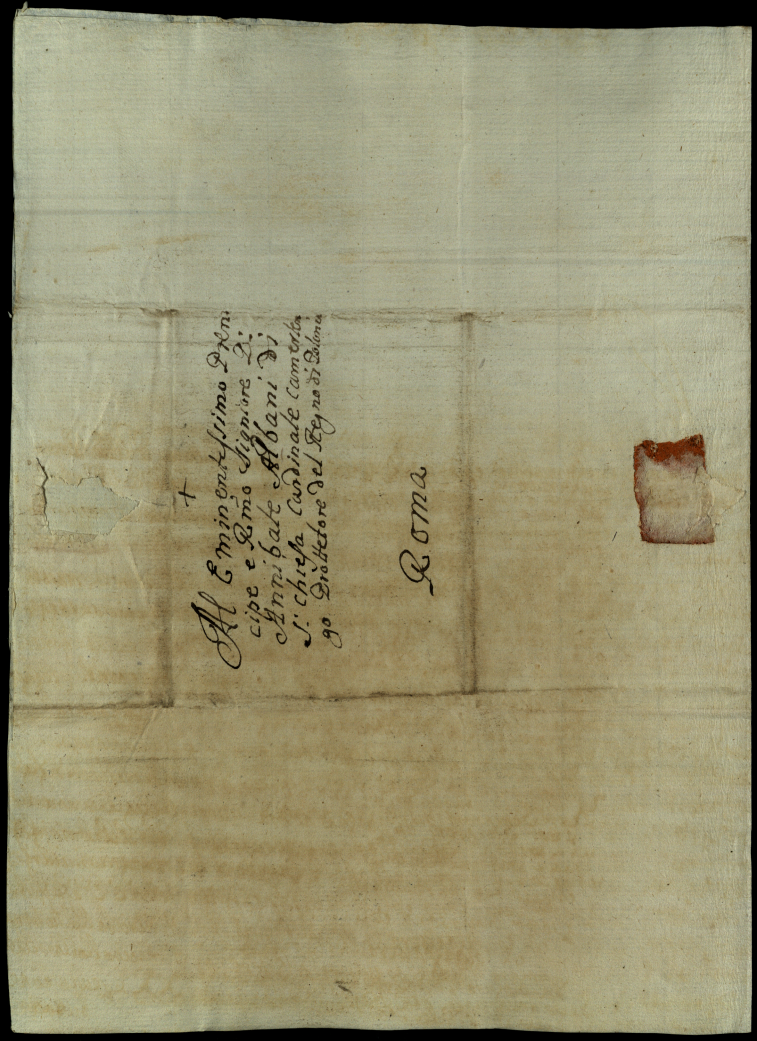 +
Al Eminentissimo Pren
cipe e Rm̃o Signiore Di
Annibale Albani di
S. Chiesa Cardinale Camerlen
go Prottetore del Regno di Polonia
Roma